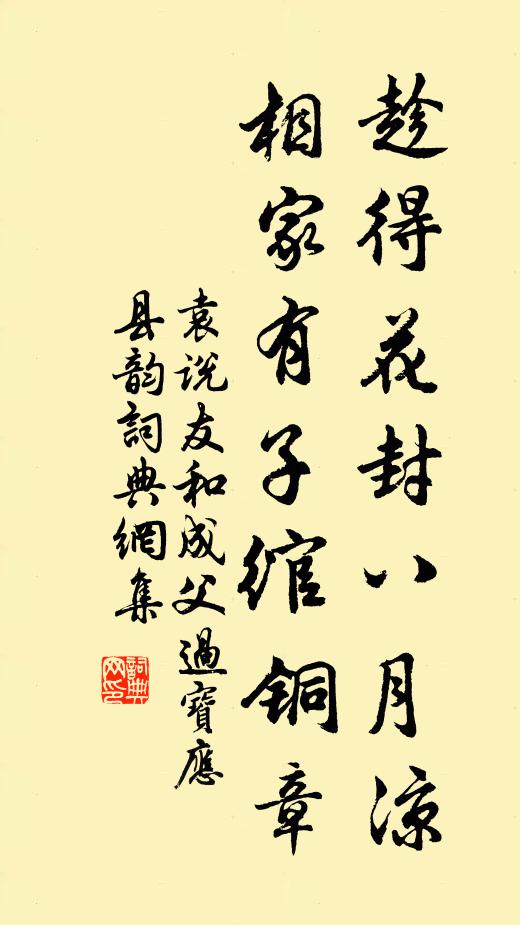 趁得花封八月凉
相家有子綰铜章
袁说友和成父過寶應
县韵詞典網集
詞典网印